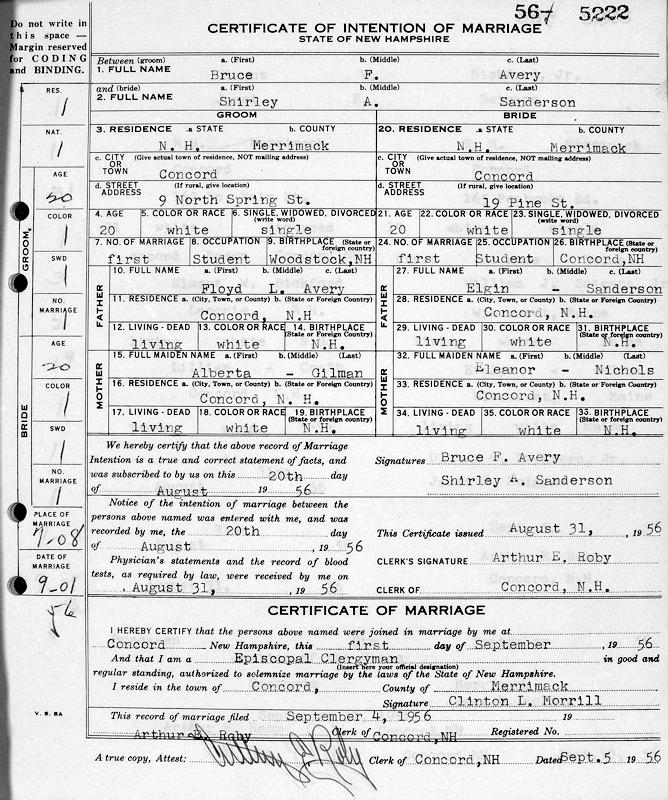 567 5222
Do not write in
this space —
Margin reserved
for CODING
and BINDING.
CERTIFICATE OF INTENTION OF MARRIAGE
STATE OF NEW HAMPSHIRE
Between (groom) a. (First) b. (Middle) c. (Last)
1. FULL NAME Bruce F. Avery
and (bride) a. (First) b. (Middle) c. (Last)
2. FULL NAME Shirley A. Sanderson
GROOM BRIDE
3. RESIDENCE a. STATE b. COUNTY 20. RESIDENCE a. STATE b. COUNTY
N. H. Merrimack N.H. Merrimack
c. CITY OR TOWN (Give actual town of residence, NOT mailing address) c. CITY OR TOWN (Give actual town of residence, NOT mailing address)
Concord Concord
d. STREET ADDRESS (If rural, give location) d. STREET ADDRESS (If rural, give location)
9 North Spring St. 19 Pine St.
4. AGE 5. COLOR OR RACE 6. SINGLE, WIDOWED, DIVORCED (write word) 21. AGE 22. COLOR OR RACE 23. SINGLE, WIDOWED, DIVORCED (write word)
20 white single 20 white single
7. NO. OF MARRIAGE 8. OCCUPATION 9. BIRTHPLACE (State or foreign country) 24. NO. OF MARRIAGE 25. OCCUPATION 26. BIRTHPLACE (State or foreign country)
first Student Woodstock,NH first Student Concord,NH
FATHER 10. FULL NAME a. (First) b. (Middle) c. (Last) FATHER 27. FULL NAME a. (First) b. (Middle) c. (Last)
Floyd L. Avery Elgin - Sanderson
11. RESIDENCE a. (City, Town, or County) b. (State or Foreign Country) 28. RESIDENCE a. (City, Town, or County) b. (State or Foreign Country)
Concord, N.H Concord, N.H.
12. LIVING - DEAD 13. COLOR OR RACE 14. BIRTHPLACE (State or Foreign Country) 29. LIVING - DEAD 30. COLOR OR RACE 31. BIRTHPLACE (State or foreign Country)
living white N.H. living white N.H.
MOTHER 15. FULL MAIDEN NAME a. (First) b. (Middle) c. (Last) MOTHER 32. FULL MAIDEN NAME a. (First) b. (Middle) c. (Last)
Alberta - Gilman Eleanor - Nichols
16. RESIDENCE a. (City, Town, or County) b. (State or Foreign Country) 33. RESIDENCE a. (City, Town, or County) b. (State or Foreign Country)
Concord, N. H. Concord, N.H.
17. LIVING - DEAD 18. COLOR OR RACE 19. BIRTHPLACE (State or Foreign Country) 34. LIVING - DEAD 35. COLOR OR RACE BIRTHPLACE (State or Foreign Country)
living white N.H. living white N.H.
RES.
1
NAT.
1
AGE
20
COLOR
1
SWD
1
NO. MARRIAGE
1
GROOM,
AGE
20
COLOR
1
SWD
1
NO. MARRIAGE
1
BRIDE
PLACE OF MARRIAGE
7-08
DATE OF MARRIAGE
9-01
56
V. S. 8A
We hereby certify that the above record of Marriage
Intention is a true and correct statement of facts, and
was subscribed to by us on this 20th day
of August 19 56
Signatures Bruce F. Avery
Shirley A. Sanderson
Notice of the intention of marriage between the
persons above named was entered with me, and was
recorded by me, the 20th day
of August , 19 56
Physician's statements and the record of blood
tests, as required by law, were received by me on
August 31, , 19 56
This Certificate issued August 31, , 19 56
CLERK'S SIGNATURE Arthur E. Roby
CLERK OF Concord, N.H.
CERTIFICATE OF MARRIAGE
I HEREBY CERTIFY that the persons above named were joined in marriage by me at
Concord New Hampshire, this first day of September , 19 56
And that I am a Episcopal Clergyman in good and
(Insert here your official designation)
regular standing, authorized to solemnize marriage by the laws of the State of New Hampshire.
I reside in the town of Concord, County of Merrimack
Signature Clinton L. Morrill
This record of marriage filed September 4, 1956 19
Arthur E. Roby Clerk of Concord,NH Registered No.
A true copy, Attest: Arthur E. Roby Clerk of Concord,NH Dated Sept.5 19 56